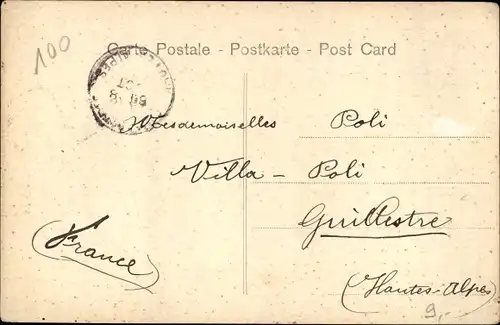 100
Carte Postale - Postkarte - Post Card
Mesdemoiselles Poli
Villa - Poli
Guillestre
(France)
(Hautes-Alpes)
9,-